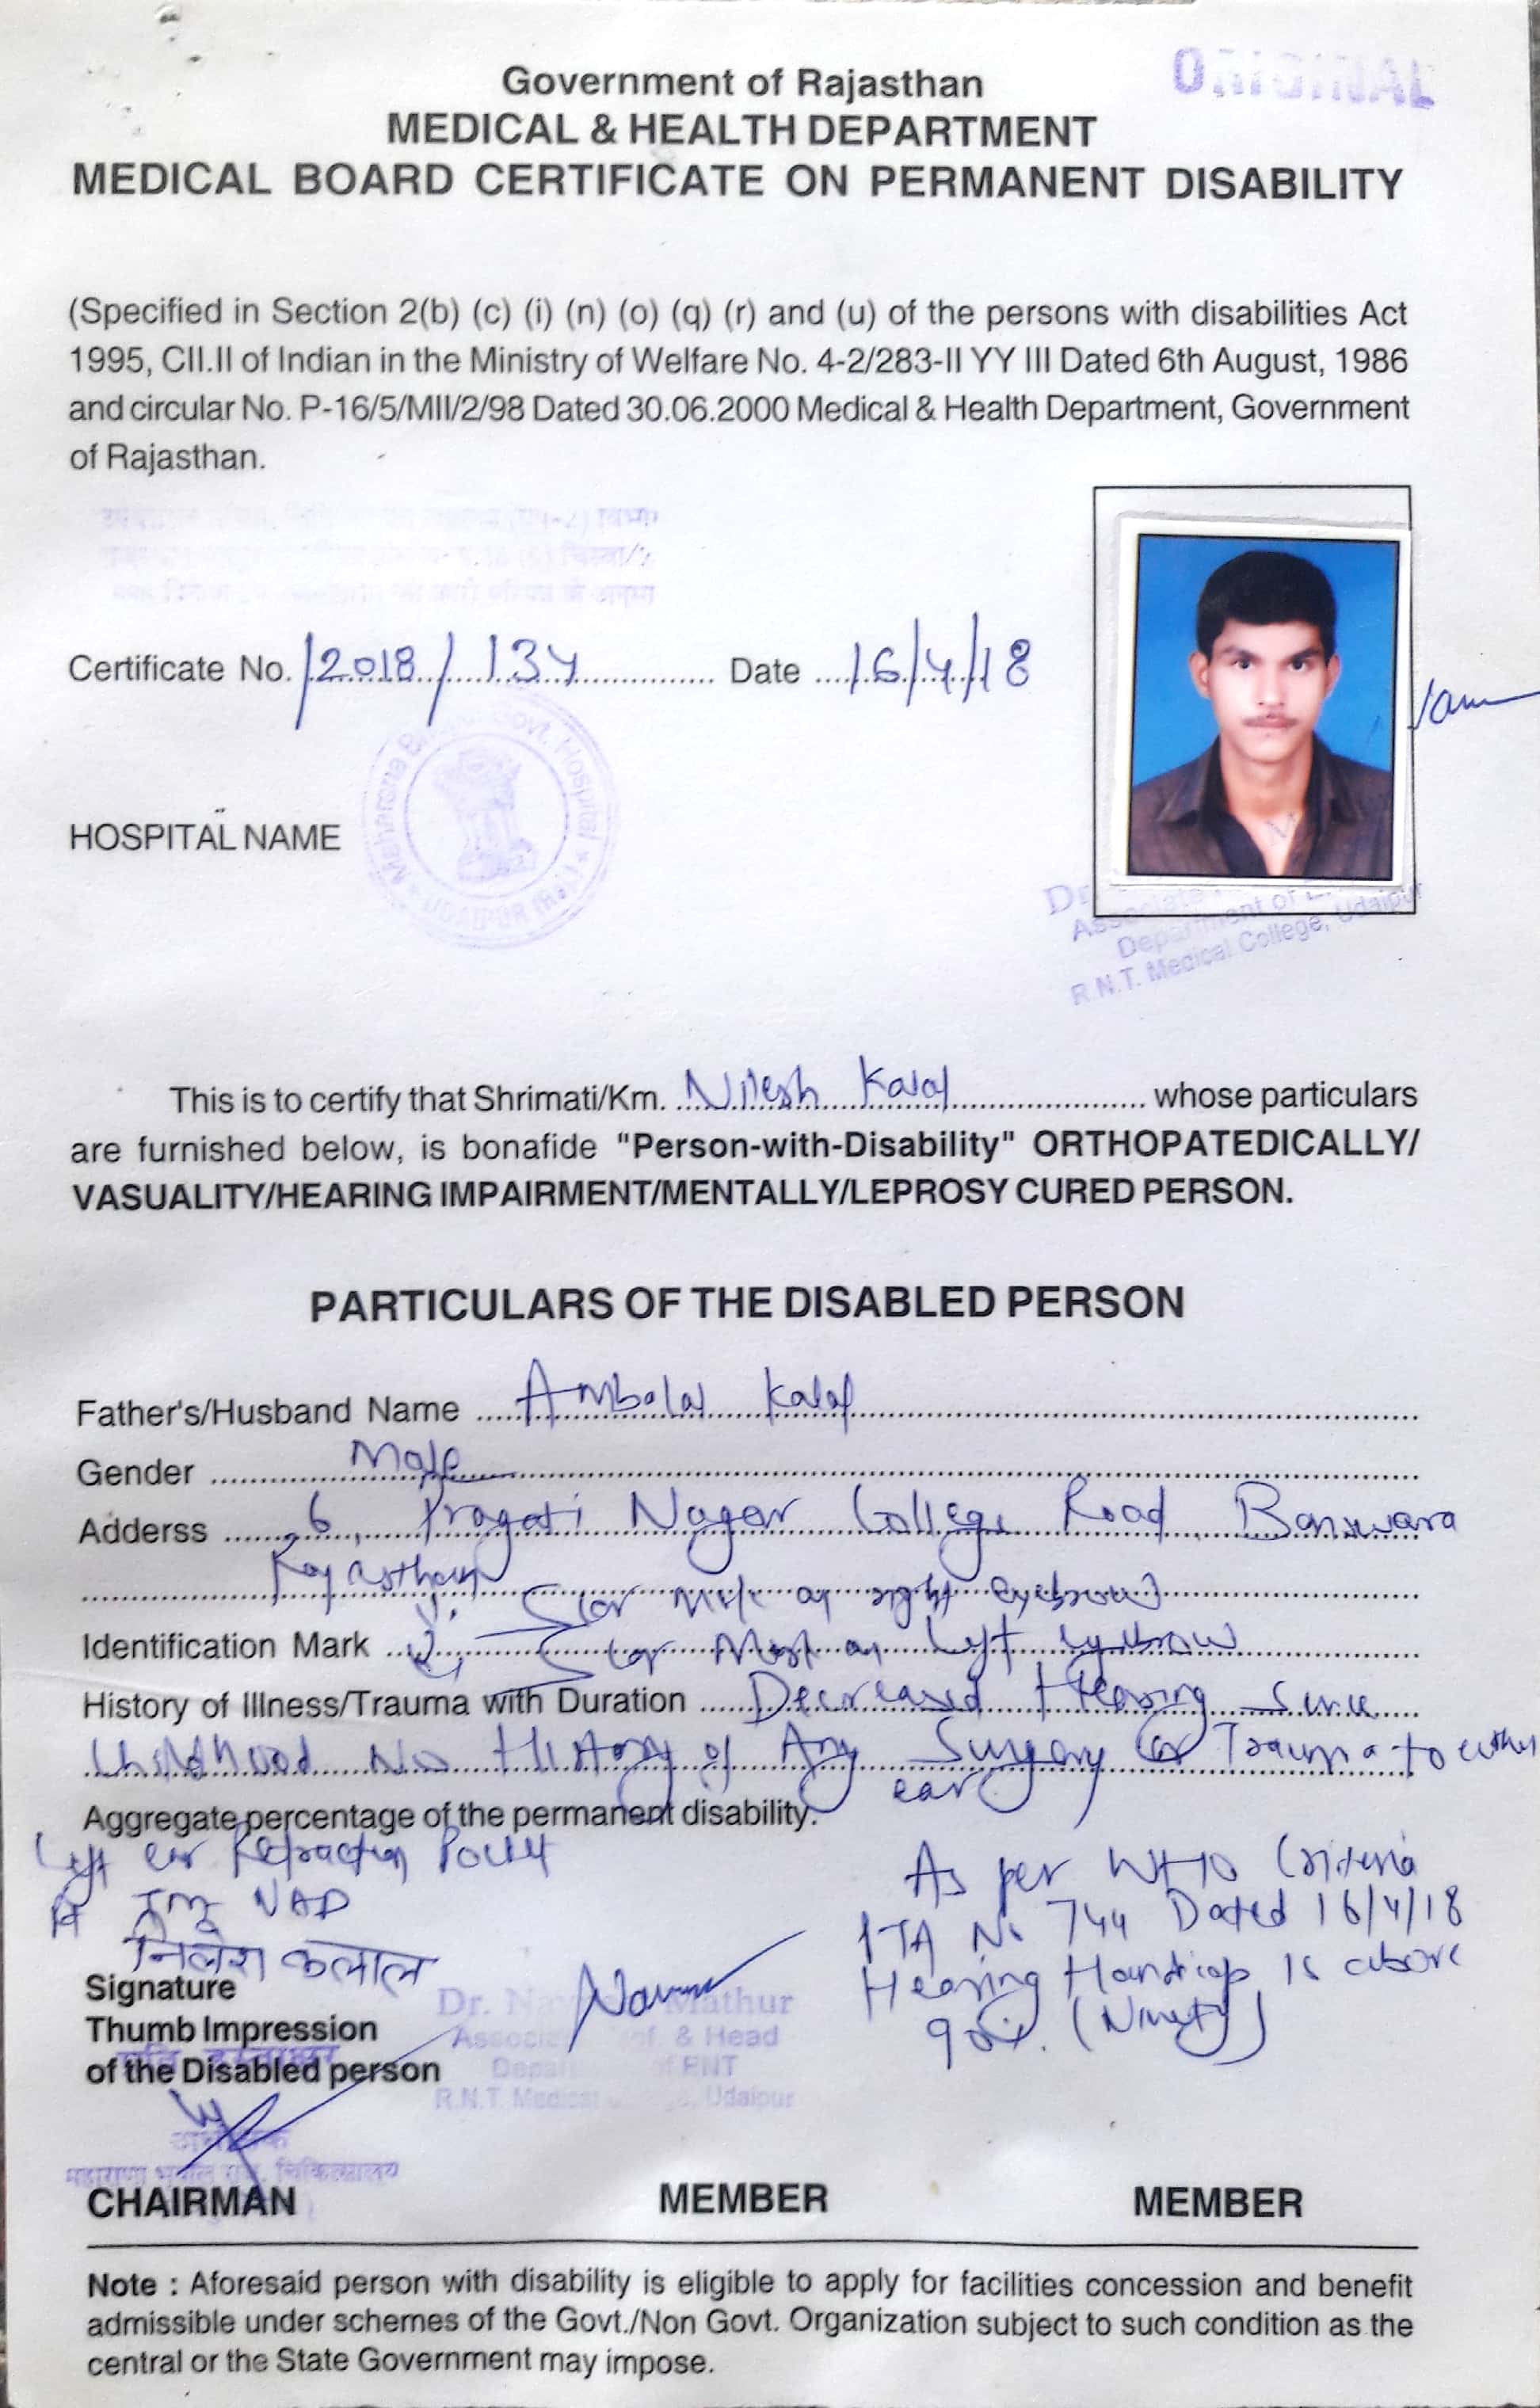 ORIGINAL
Government of Rajasthan
MEDICAL & HEALTH DEPARTMENT
MEDICAL BOARD CERTIFICATE ON PERMANENT DISABILITY
(Specified in Section 2(b) (c) (i) (n) (o) (q) (r) and (u) of the persons with disabilities Act
1995, CII.II of Indian in the Ministry of Welfare No. 4-2/283-II YY III Dated 6th August, 1986
and circular No. P-16/5/MII/2/98 Dated 30.06.2000 Medical & Health Department, Government
of Rajasthan.
Certificate No. /2018/134 Date 16/4/18
HOSPITAL NAME
Govt. Hospital
UDAIPUR (Raj.)
Dr.
Associate
Department of
R.N.T. Medical College, Udaipur
This is to certify that Shrimati/Km. Nilesh Kalal whose particulars
are furnished below, is bonafide "Person-with-Disability" ORTHOPATEDICALLY/
VASUALITY/HEARING IMPAIRMENT/MENTALLY/LEPROSY CURED PERSON.
PARTICULARS OF THE DISABLED PERSON
Father's/Husband Name Ambalal Kalal
Gender Male
Adderss 6, Pragati Nagar College Road Banswara
Rajasthan
Scar on right eyebrow
Identification Mark Scar on left eyebrow
History of Illness/Trauma with Duration Decreased Hearing Since
Childhood No History of Any Surgery or Trauma to either
ear
Aggregate percentage of the permanent disability.
Left ear Retraction
TM NAD
निलेश कलाल
As per WHO Criteria
PTA No 744 Dated 16/4/18
Hearing Handicap is above
90%. (Ninety)
Signature
Thumb Impression
of the Disabled person
Dr. Mathur
& Head
of ENT
R.N.T. Medical Udaipur
चिकित्सालय
CHAIRMAN MEMBER MEMBER
Note : Aforesaid person with disability is eligible to apply for facilities concession and benefit
admissible under schemes of the Govt./Non Govt. Organization subject to such condition as the
central or the State Government may impose.